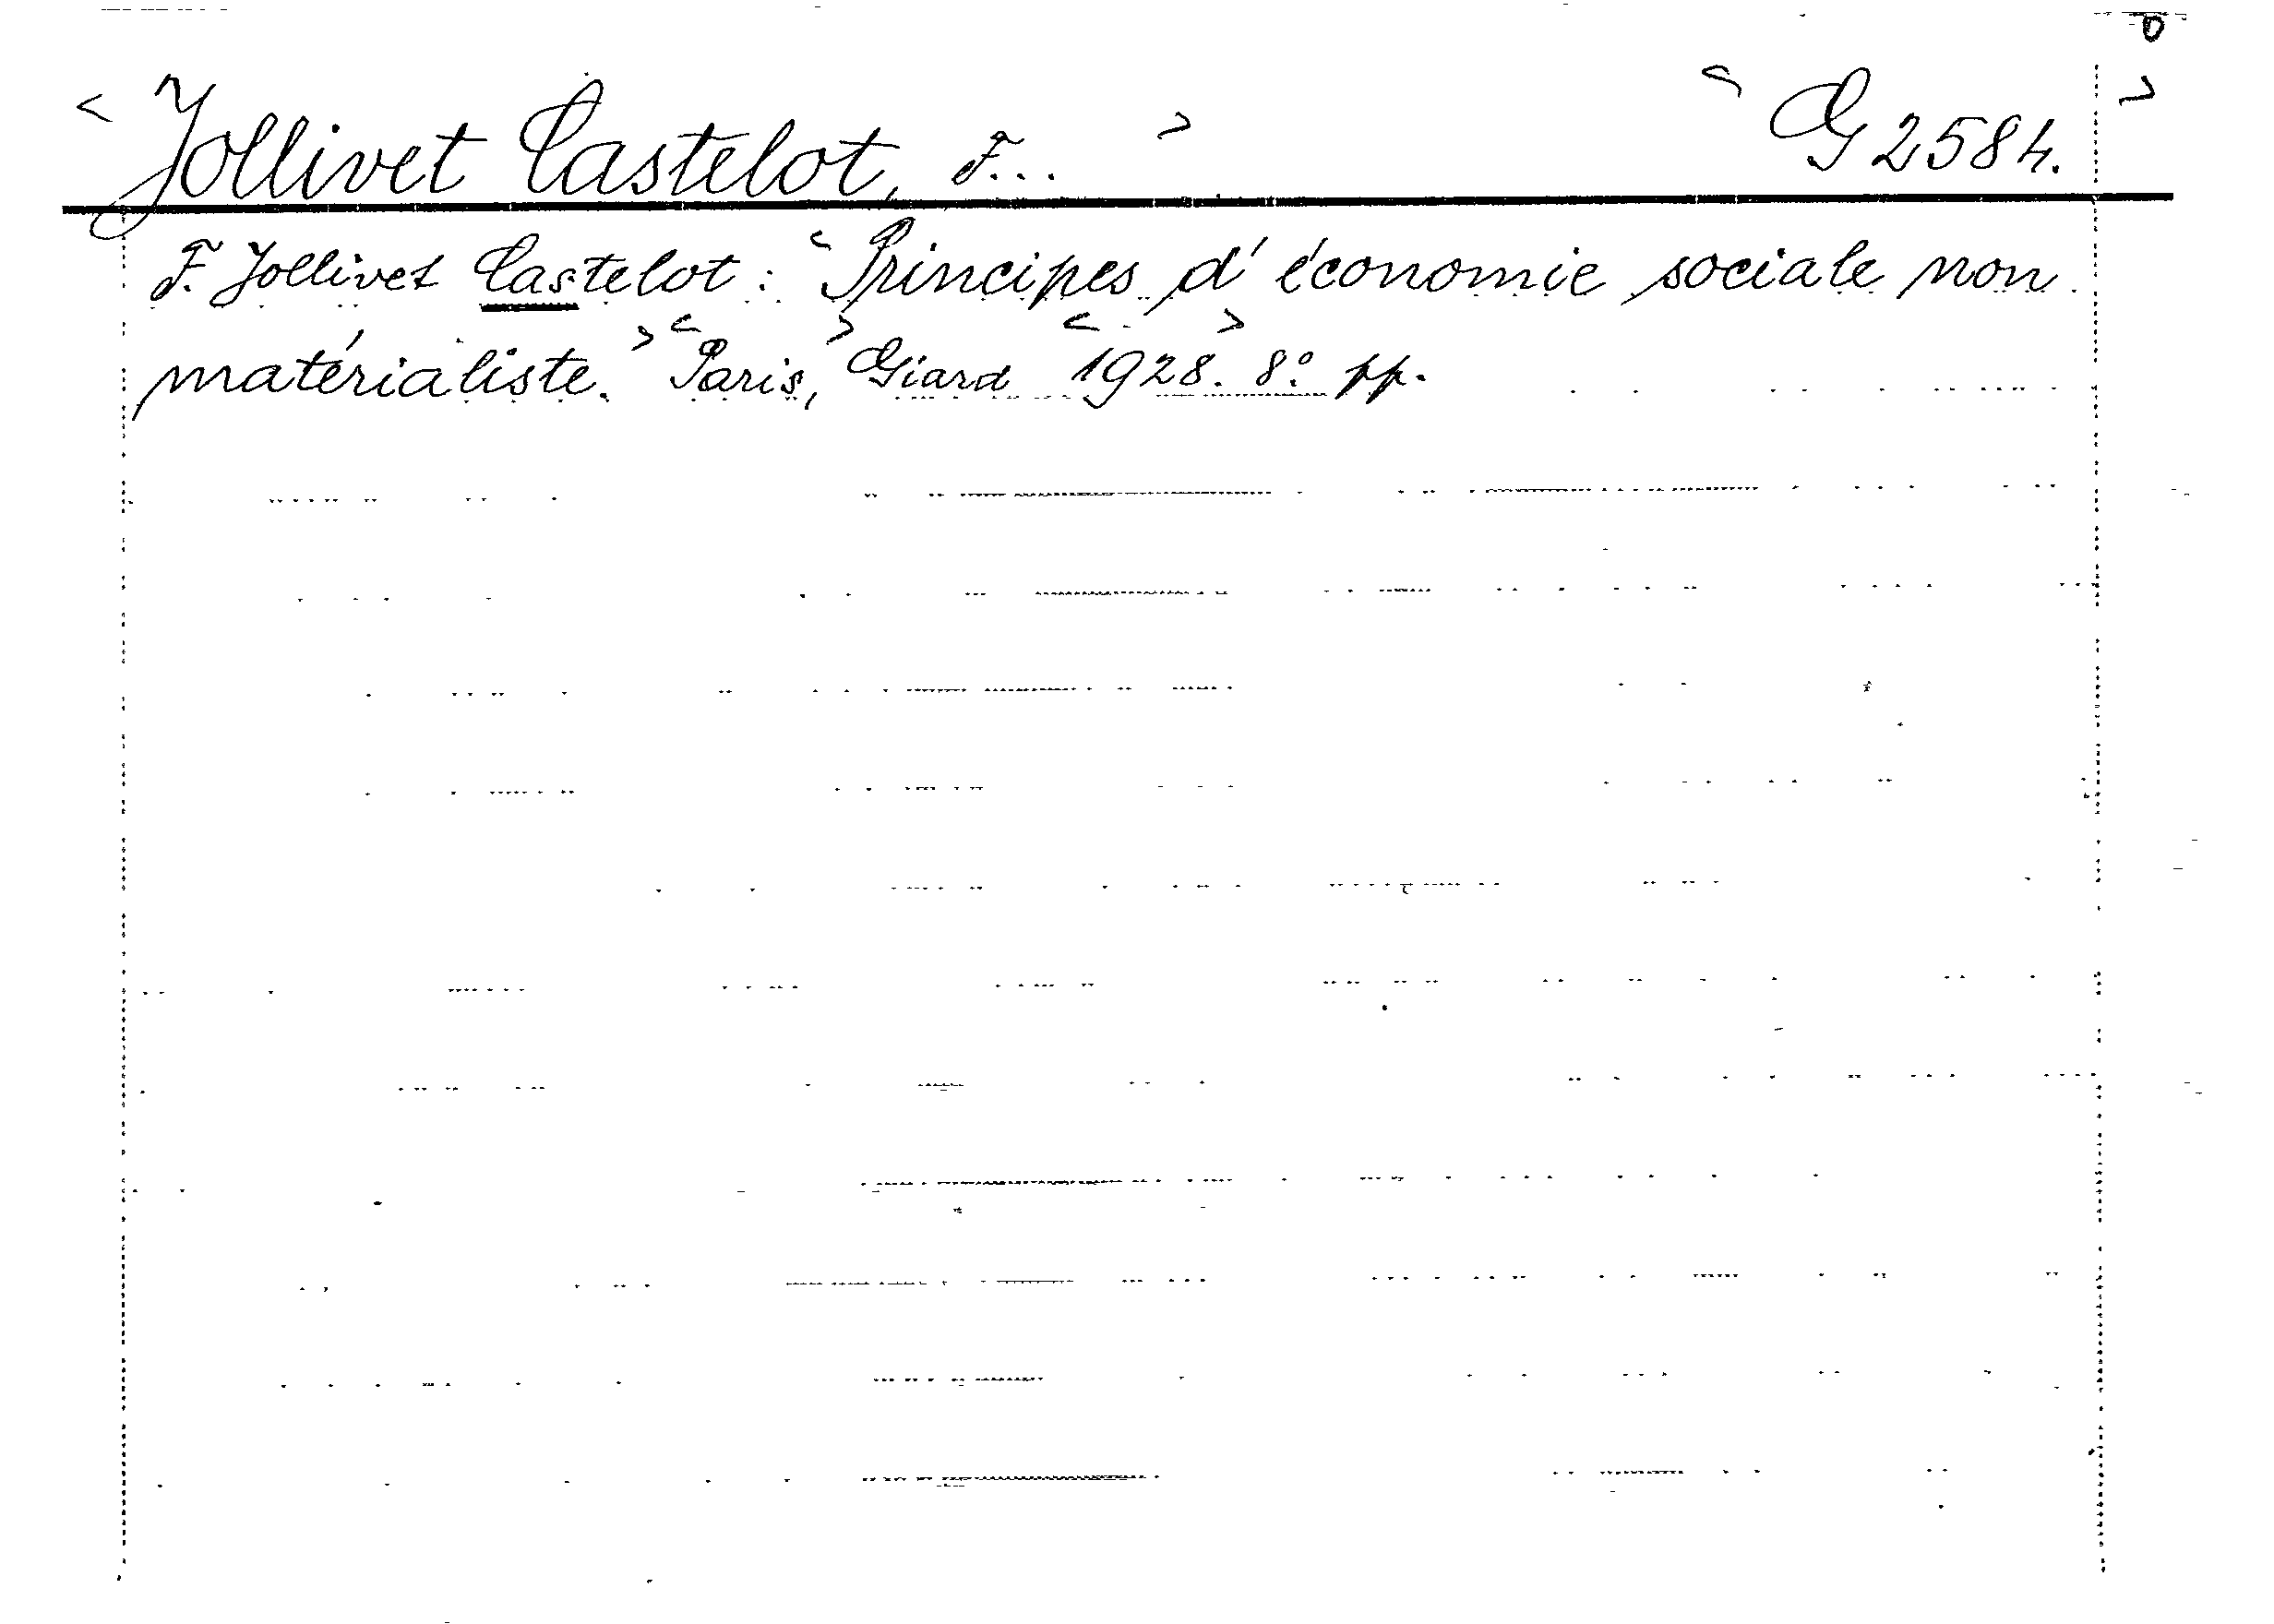 < Jollivet Castelot, F... > < G 2584. >
F. Jollivet Castelot : < Principes d'économie sociale non
matérialiste. > < Paris, > Giard < 1928. > 8° pp.